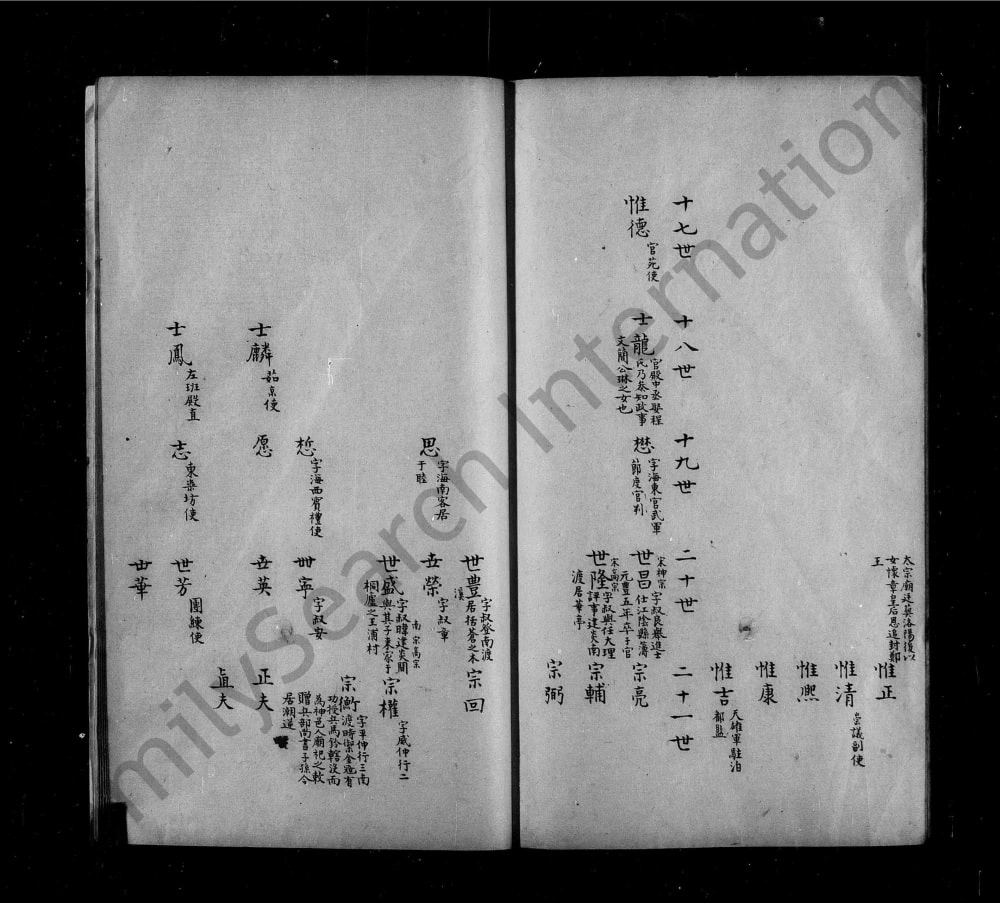 太宗廟廷葬洛陽復以
女懷章皇后恩追封鄭
王
惟正
惟清
崇議副使
惟熙
惟康
惟吉
天雄軍駐泊
都監
十七世
十八世
十九世
二十世
二十一世
惟德
官苑使
士龍
官殿中丞娶程
氏乃叅知政事
文簡公琳之女也
懋
字海東官武軍
節度官判
世昌
宋神宗
字叔良舉進士
仕江陰縣簿
元豊五年卒于官
宗亮
世隆
宋高宗
字叔興任大理
評事建炎南
渡居華亭
宗輔
宗弼
思
字海南客居
于睦
世豊
字叔登南渡
居括蒼之木
溪
宗回
世榮
字叔章
世盛
南宋高宗
字叔暐建炎間
與其子東家于
桐廬之王浦村
宗權
字威仲行二
宗衡
字平仲行三南
渡時禦金寇有
功授兵馬鈐轄沒而
為神邑人廟祀之敕
贈兵部尚書子孫今
居潮邊
悊
字海西賓禮使
世寧
字叔安
士麟
茹京使
愿
世英
正夫
直夫
士鳳
左班殿直
志
東染坊使
世芳
團練使
世華
milySearch Internation